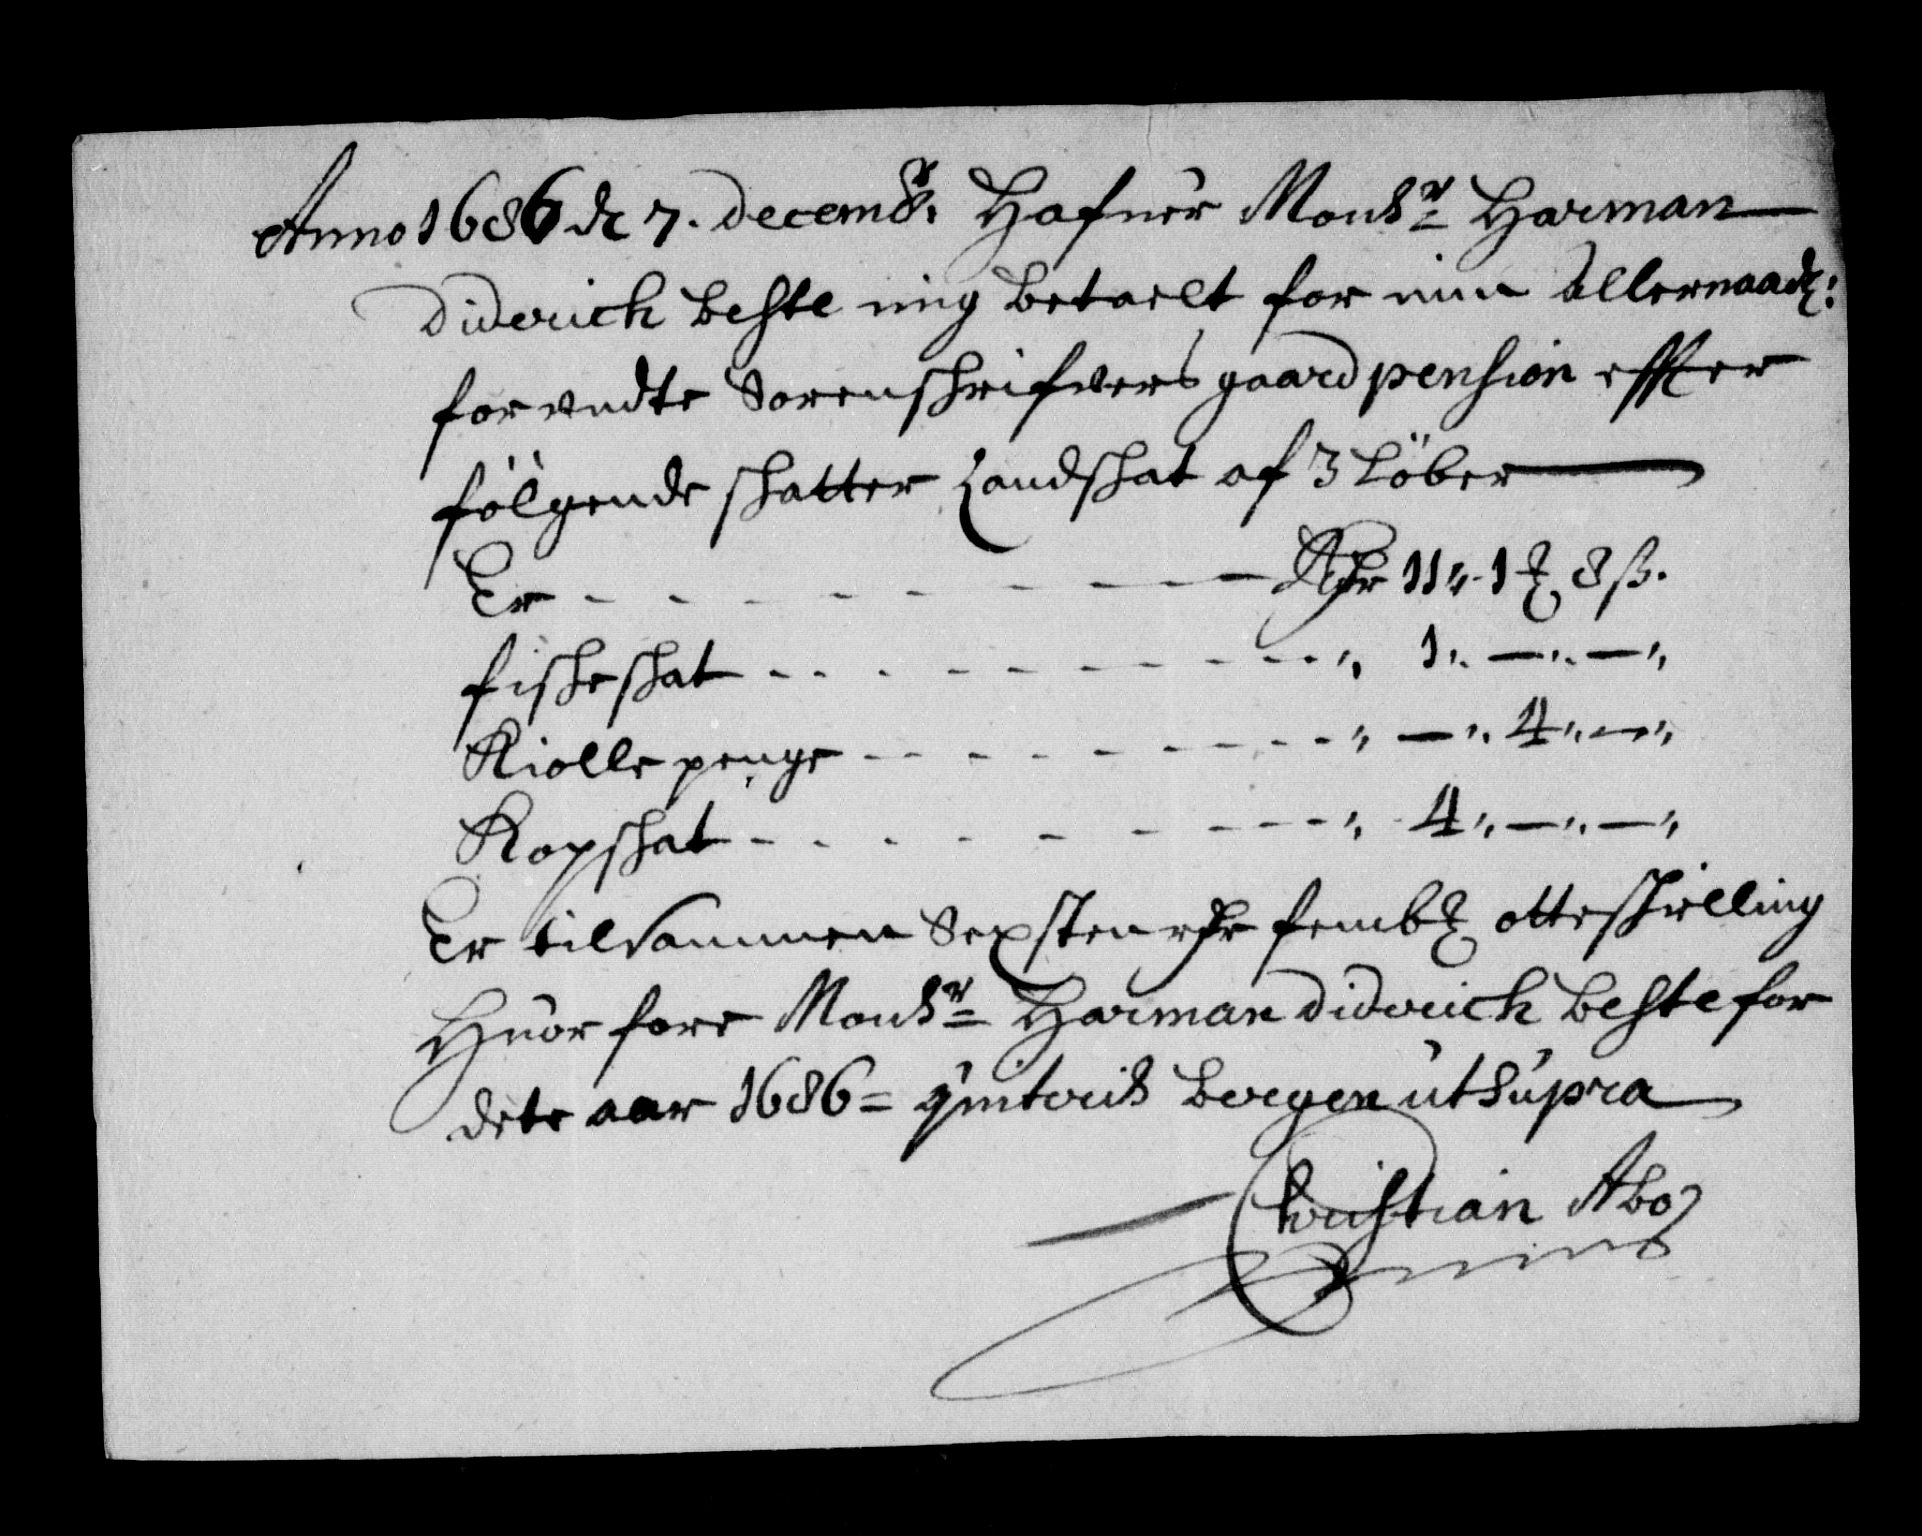 Anno 1686 de 7. decemb:r Hafuer Monsr Harman
Diderich Beste mig betaelt for min Allernaadg:
forundte Sorenschrifvers gaard pension effter
fölgende skatter Landskat af 3 Löber
Er - - - - - - - - - Rdr 11 „ 1 ℔ 8 ß.
fiskeskat - - - - - - - - - „ 1 „ — „ — „
Kiolle penge - - - - - - - - „ — „ 4 „ — „
Kopskat - - - - - - - - - „ 4 „ — „ — „
Er tilsammen Sexsten rdr femb℔ otte skilling
Huorfore Monsr Harman diderich Beste for
dete aar 1686 = qviteris Bergen ut Supra
Christian Abo